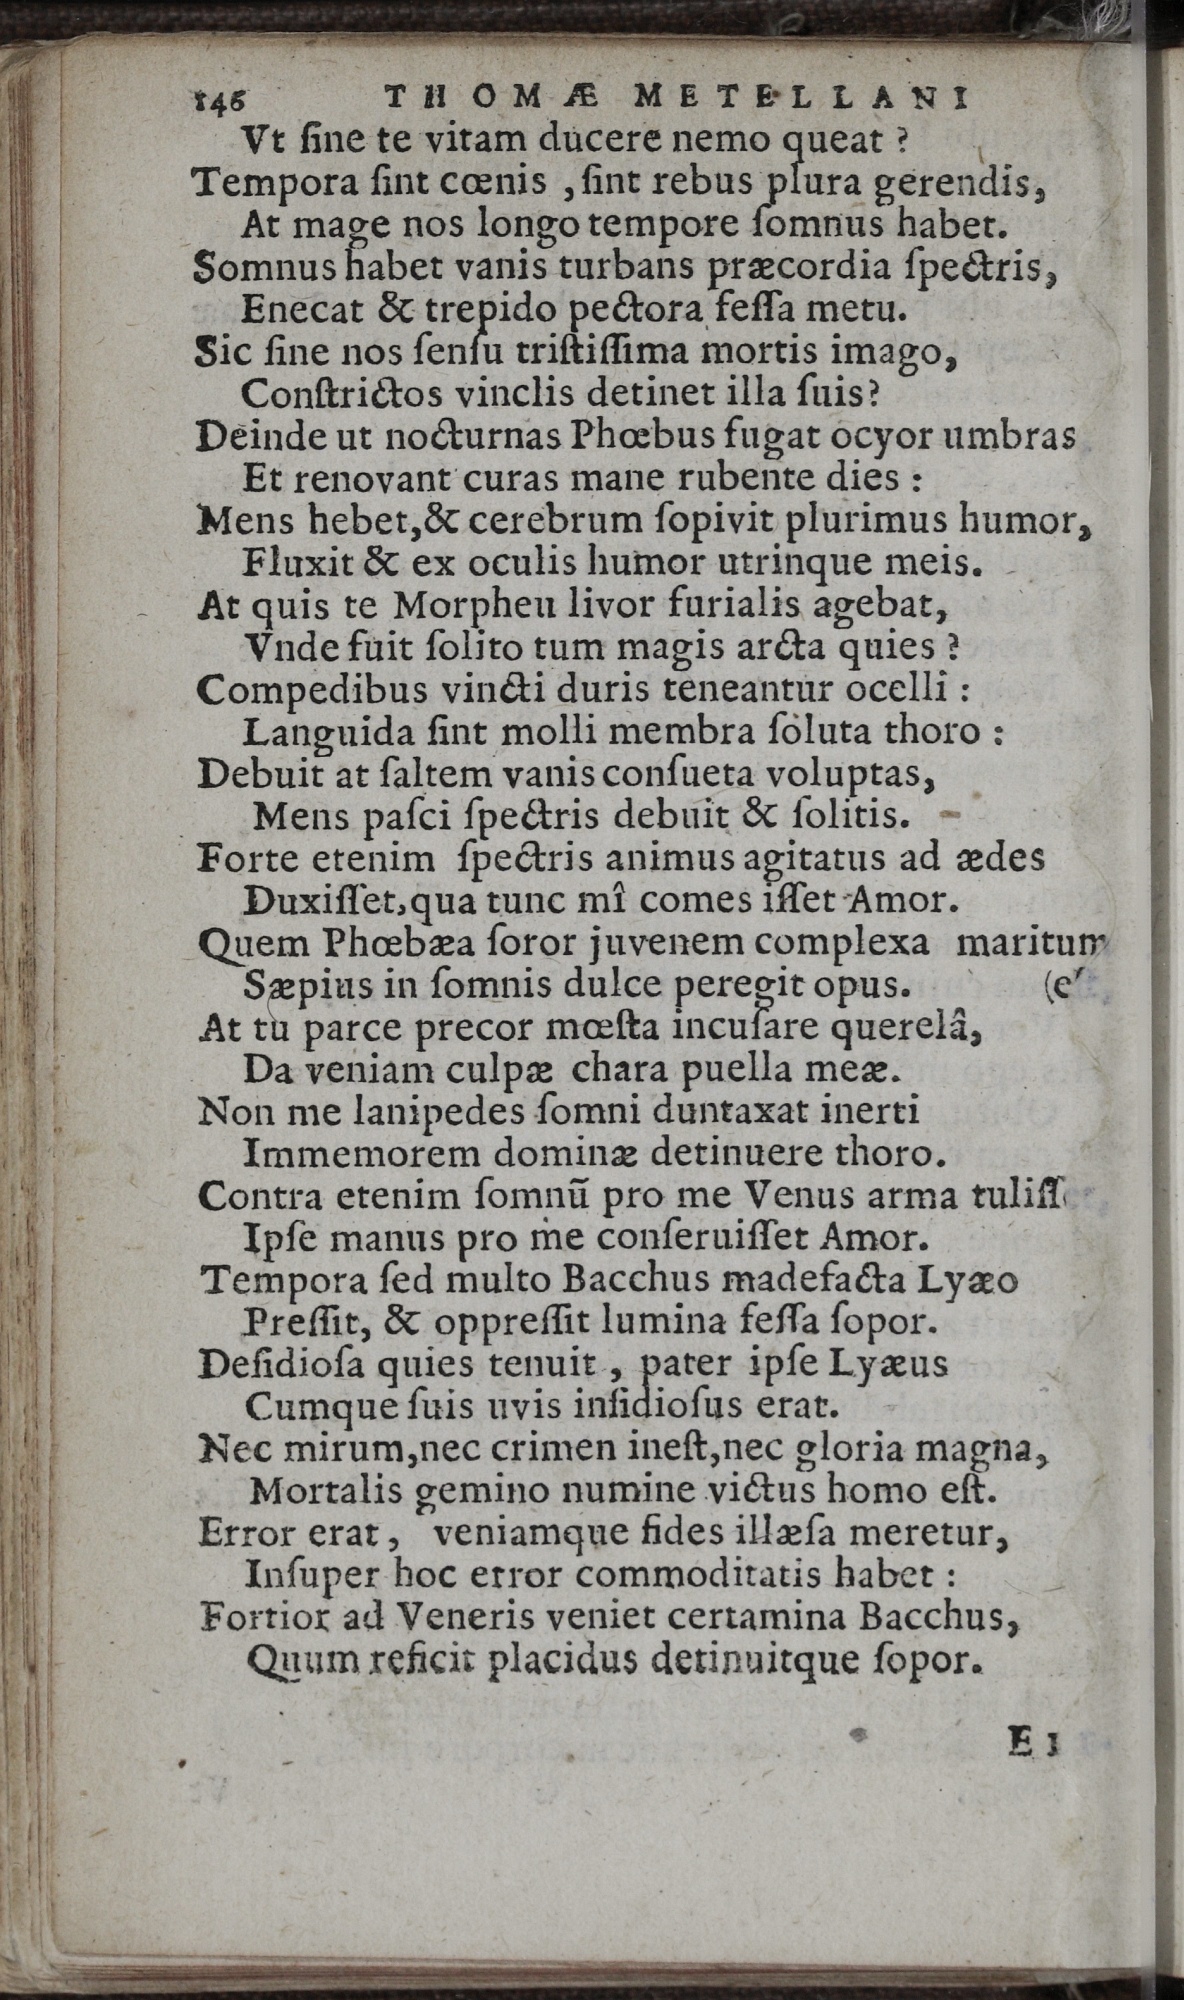 146 THOMÆ METELLANI
Vt ſine te vitam ducere nemo queat ?
Tempora ſint cœnis , ſint rebus plura gerendis,
At mage nos longo tempore ſomnus habet.
Somnus habet vanis turbans præcordia ſpectris,
Enecat & trepido pectora feſſa metu.
Sic ſine nos ſenſu triſtiſſima mortis imago,
Conſtrictos vinclis detinet illa ſuis?
Deinde ut nocturnas Phœbus fugat ocyor umbras
Et renovant curas mane rubente dies :
Mens hebet,& cerebrum ſopivit plurimus humor,
Fluxit & ex oculis humor utrinque meis.
At quis te Morpheu livor furialis agebat,
Vnde fuit ſolito tum magis arcta quies ?
Compedibus vincti duris teneantur ocelli :
Languida ſint molli membra ſoluta thoro :
Debuit at ſaltem vanis conſueta voluptas,
Mens paſci ſpectris debuit & ſolitis.
Forte etenim ſpectris animus agitatus ad ædes
Duxiſſet,qua tunc mî comes iſſet Amor.
Quem Phœbæa ſoror juvenem complexa maritum
Sæpius in ſomnis dulce peregit opus.
At tu parce precor mœſta incuſare querelâ,
Da veniam culpæ chara puella meæ.
Non me lanipedes ſomni duntaxat inerti
Immemorem dominæ detinuere thoro.
Contra etenim ſomnũ pro me Venus arma tuliſſ
Ipſe manus pro me conſeruiſſet Amor.
Tempora ſed multo Bacchus madefacta Lyæo
Preſſit, & oppreſſit lumina feſſa ſopor.
Deſidioſa quies tenuit , pater ipſe Lyæus
Cumque ſuis uvis inſidioſus erat.
Nec mirum,nec crimen ineſt,nec gloria magna,
Mortalis gemino numine victus homo eſt.
Error erat , veniamque fides illæſa meretur,
Inſuper hoc error commoditatis habet :
Fortior ad Veneris veniet certamina Bacchus,
Quum reficit placidus detinuitque ſopor.